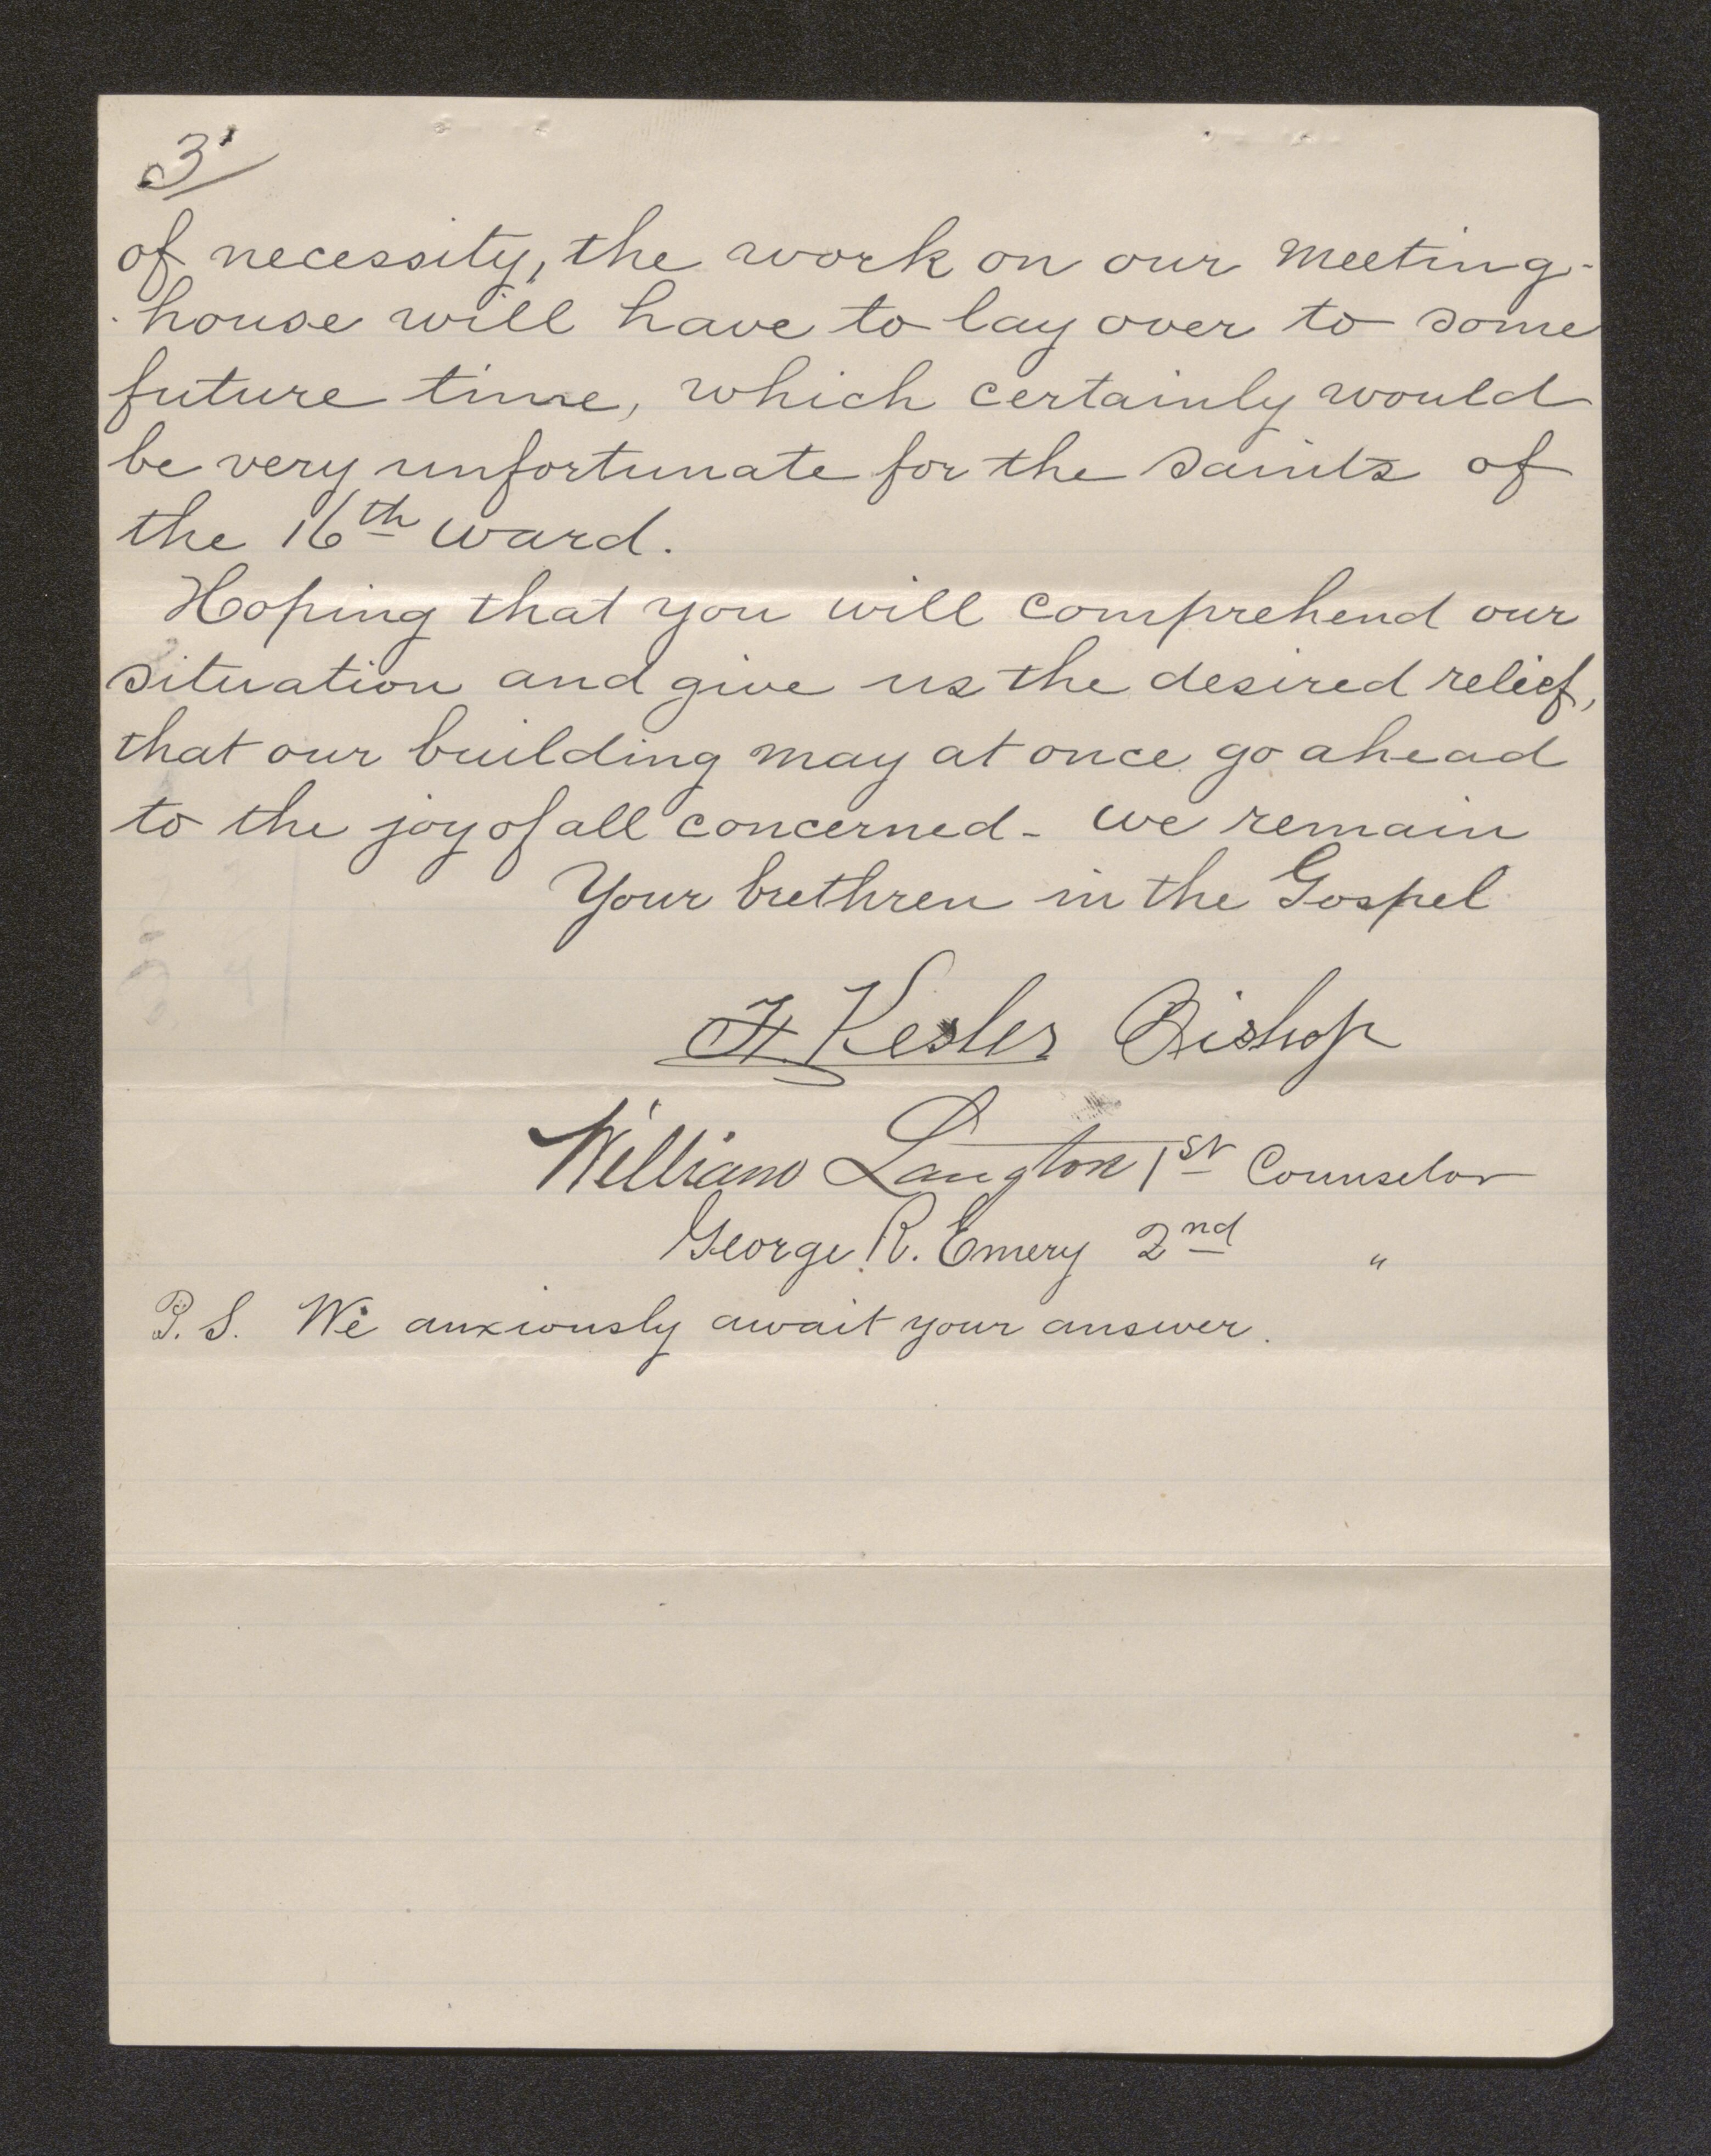 3
of necessity, the work on our meeting-
-house will have to lay over to some
future time, which certainly would
be very unfortunate for the saints of
the 16th ward.
Hoping that you will comprehend our
situation and give us the desired relief,
that our building may at once go ahead
to the joy of all concerned - we remain
Your brethren in the Gospel
F. Kesler Bishop
William Langton 1st Counselor
George R. Emery 2nd "
P.S. We anxiously await your answer.